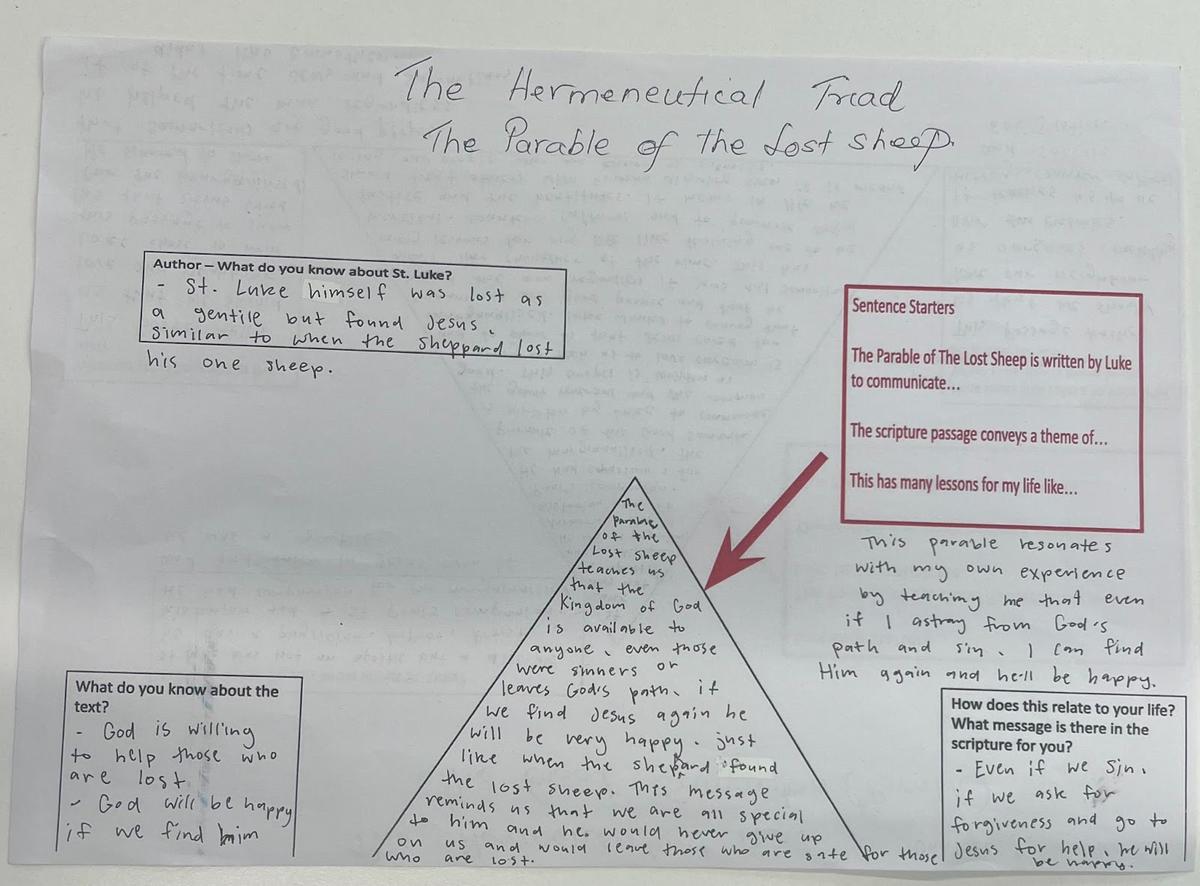 The Hermeneutical Triad
The Parable of the Lost sheep.
Author – What do you know about St. Luke?
- St. Luke himself was lost as
a gentile but found Jesus,
similar to when the sheppard lost
his one sheep.
Sentence Starters
The Parable of The Lost Sheep is written by Luke
to communicate...
The scripture passage conveys a theme of...
This has many lessons for my life like...
This parable resonates
with my own experience
by teaching me that even
if I astray from God's
path and sin, I can find
Him again and he'll be happy.
The
parable
of the
Lost sheep
teaches us
that the
Kingdom of God
is available to
anyone, even those
were sinners or
leaves God's path, if
we find Jesus again he
will be very happy. just
like when the shepard found
the lost sheep. This message
reminds us that we are all special
to him and he would never give up
on us and would leave those who are safe for those
who are lost.
What do you know about the
text?
- God is willing
to help those who
are lost
- God will be happy
if we find him
How does this relate to your life?
What message is there in the
scripture for you?
- Even if we sin,
if we ask for
forgiveness and go to
Jesus for help, he will
be happy.